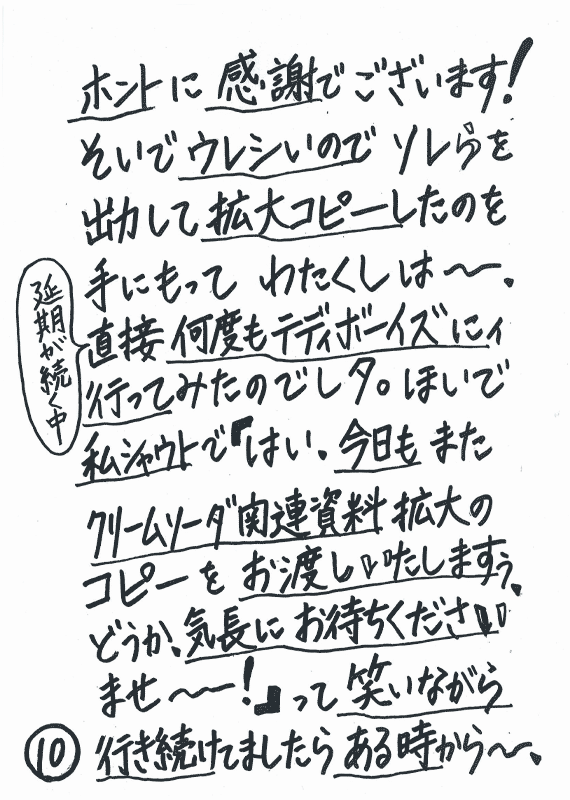 ホントに感謝でございます!
そいでウレシいのでソレらを
出力して拡大コピーしたのを
手にもって わたくしは〜、
延期が続く中
直接何度もテディボーイズにィ
行ってみたのでしタ。ほいで
私シャウトで『はい。今日もまた
クリームソーダ関連資料拡大の
コピーをお渡しいたしますぅ。
どうか、気長にお待ちください
ませ〜〜!』って笑いながら
⑩ 行き続けてましたらある時から〜、